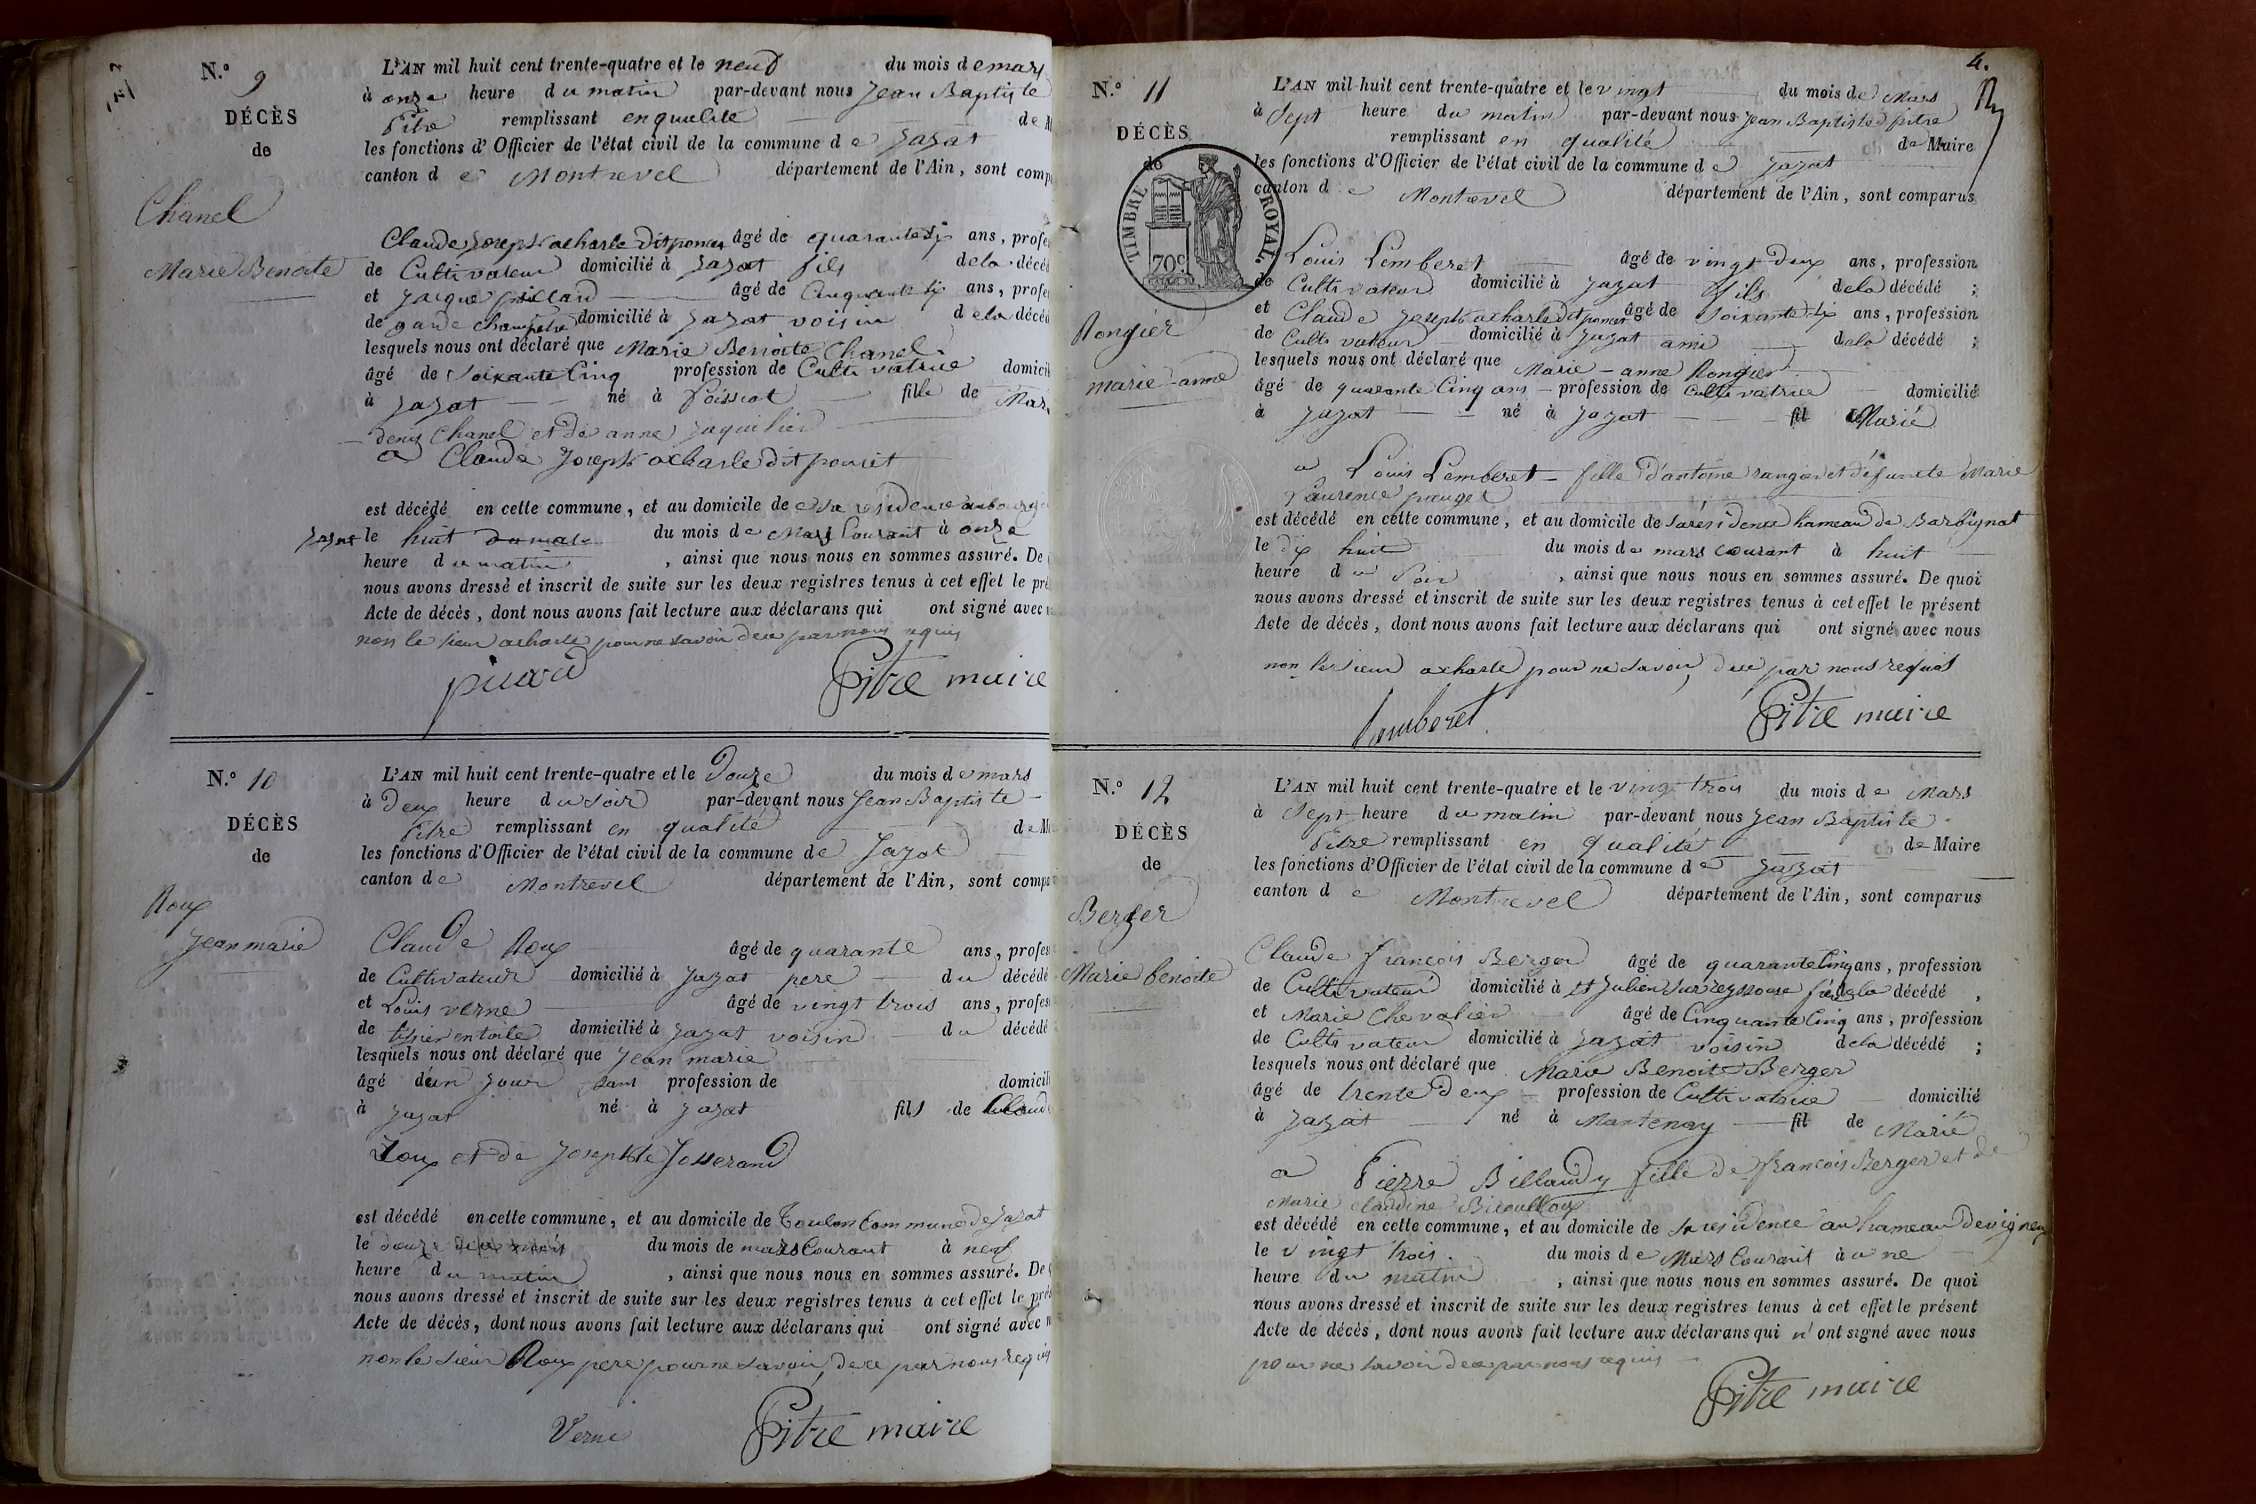 N.° 9
DÉCÈS
de
Chanel
Marie Benoite
L'AN mil huit cent trente-quatre et le neuf du mois de mars
à onze heure du matin par-devant nous Jean Baptiste
Pitre remplissant en qualité de M
les fonctions d'Officier de l'état civil de la commune de Jayat
canton de Montrevel département de l'Ain, sont comp
Claude Joseph acharle dit poncet âgé de quarante six ans, profe
de Cultivateur domicilié à Jayat fils de la décéd
et Jacque âgé de Cinquante six ans, profe
de garde champetre domicilié à Jayat voisin de la décéd
lesquels nous ont déclaré que Marie Benoite Chanel
âgé de Soixante Cinq profession de Cultivatrice domicili
à Jayat né à foissiat fille de Mar
denis Chanel et de anne Jaquilier
a Claude Joseph acharle dit poncet
est décédé en cette commune, et au domicile de sa residence au bourg
Jayat le huit du mois de Mars Courant à onze
heure du matin, ainsi que nous nous en sommes assuré. De
nous avons dressé et inscrit de suite sur les deux registres tenus à cet effet le pré
Acte de décès, dont nous avons fait lecture aux déclarans qui ont signé avec n
non le sieur acharle pour ne savoir de ce par nous requis
Pitre maire
N.° 10
DÉCÈS
de
Roux
Jean marie
L'AN mil huit cent trente-quatre et le Douze du mois de mars
à deux heure du soir par-devant nous Jean Baptiste
Pitre remplissant en qualité de M
les fonctions d'Officier de l'état civil de la commune de Jayat
canton de Montrevel département de l'Ain, sont compa
Claude Roux âgé de quarante ans, profes
de Cultivateur domicilié à Jayat pere du décédé
et Louis verne âgé de vingt trois ans, profess
de tissier en toile domicilié à Jayat voisin du décédé
lesquels nous ont déclaré que Jean marie
âgé d'un Jour sans profession de domicili
à Jayat né à Jayat fils de Claude
Roux et de Josephte Josserand
est décédé en cette commune, et au domicile de Toulon Commune de Jayat
le douze du mois de mars Courant à neuf
heure du matin, ainsi que nous nous en sommes assuré. De
nous avons dressé et inscrit de suite sur les deux registres tenus à cet effet le pré
Acte de décès, dont nous avons fait lecture aux déclarans qui ont signé avec n
non le sieur Roux pere pour ne savoir de ce par nous requis
Verne Pitre maire
4.
N.° 11
DÉCÈS
de
TIMBRE ROYAL.
70c
Rongier
marie-anne
L'AN mil huit cent trente-quatre et le vingt du mois de Mars
à Sept heure du matin par-devant nous Jean Baptiste pitre
remplissant en qualité de Maire
les fonctions d'Officier de l'état civil de la commune de Jayat
canton de Montrevel département de l'Ain, sont comparus
Louis Lemberet âgé de vingt deux ans, profession
de Cultivateur domicilié à Jayat fils de la décédé ;
et Claude Joseph acharle dit poncet âgé de Soixante six ans, profession
de Cultivateur domicilié à Jayat ami de la décédé ;
lesquels nous ont déclaré que Marie-anne Rongier
âgé de quarante Cinq ans profession de Cultivatrice domicilié
à Jayat né à Jayat fil Marié
a Louis Lemberet fille d'antoine rangier et défunte Marie
Laurence
est décédé en cette commune, et au domicile de sa résidence hameau de Barbignat
le dix huit du mois de mars courant à huit
heure du soir, ainsi que nous nous en sommes assuré. De quoi
nous avons dressé et inscrit de suite sur les deux registres tenus à cet effet le présent
Acte de décès, dont nous avons fait lecture aux déclarans qui ont signé avec nous
non le sieur acharle pour ne savoir de ce par nous requis
Lemberet Pitre maire
N.° 12
DÉCÈS
de
Berger
Marie benoite
L'AN mil huit cent trente-quatre et le vingt trois du mois de Mars
à Sept heure du matin par-devant nous Jean Baptiste
Pitre remplissant en qualité de Maire
les fonctions d'Officier de l'état civil de la commune de Jayat
canton de Montrevel département de l'Ain, sont comparus
Claude francois Berger âgé de quarante Cinq ans, profession
de Cultivateur domicilié à St Julien sur reyssouse frère de la décédé ,
et Marie Chevalier âgé de Cinquante Cinq ans, profession
de Cultivateur domicilié à Jayat voisin de la décédé ;
lesquels nous ont déclaré que Marie Benoite Berger
âgé de trente deux profession de Cultivatrice domicilié
à Jayat né à Mantenay fil de Marié
a Pierre Billaudy fille de francois Berger et de
Marie claudine
est décédé en cette commune, et au domicile de sa residence au hameau de
le vingt trois du mois de Mars Courant à une
heure du matin, ainsi que nous nous en sommes assuré. De quoi
nous avons dressé et inscrit de suite sur les deux registres tenus à cet effet le présent
Acte de décès, dont nous avons fait lecture aux déclarans qui n'ont signé avec nous
pour ne savoir de ce par nous requis
Pitre maire